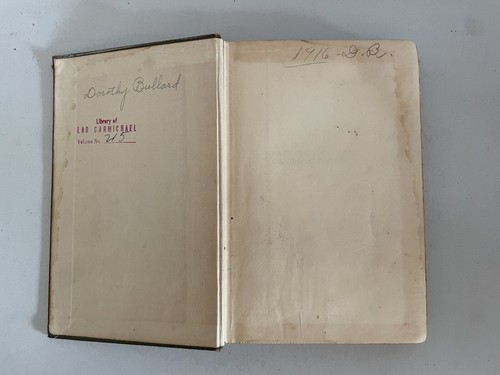 Dorothy Bullard
Library of
LAD CARMICHAEL
Volume No. 215
1916 - D. B.